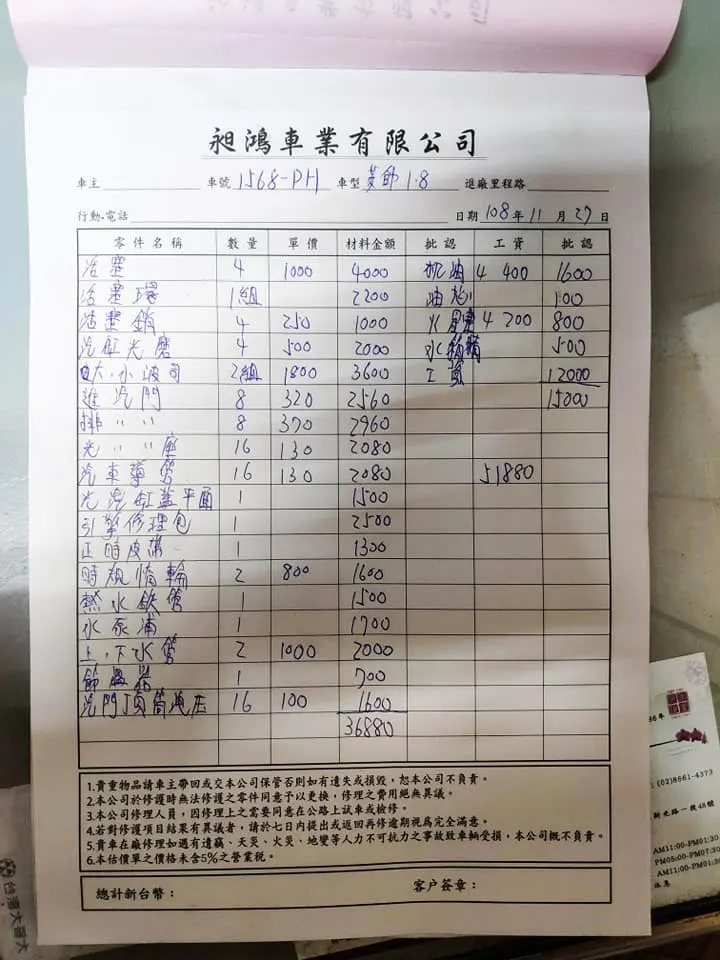 昶鴻車業有限公司
車主 車號 1568-PH 車型 菱帥 1.8 進廠里程路
行動·電話 日期 108 年 11 月 27 日
零件名稱 數量 單價 材料金額 批認 工資 批認
活塞 4 1000 4000 机油 4 400 1600
活塞環 1組 2200 油芯 100
活塞銷 4 250 1000 火星塞 4 200 800
汽缸光磨 4 500 2000 水箱精 500
大.小波司 2組 1800 3600 工資 12000
進汽門 8 320 2560 15000
排 〃 〃 8 370 2960
光 〃 〃 座 16 130 2080
汽車導管 16 130 2080 51880
光汽缸蓋平面 1 1500
引擎修理包 1 2500
正時皮帶 1 1300
時規惰輪 2 800 1600
熱水鉄管 1 1500
水泵浦 1 1700
上.下水管 2 1000 2000
節溫器 1 700
汽門頂筒 16 100 1600
36880
1.貴重物品請車主帶回或交本公司保管否則如有遺失或損毀，恕本公司不負責。
2.本公司於修護時無法修護之零件同意予以更換，修理之費用絕無異議。
3.本公司修理人員，因修理上之需要同意在公路上試車或檢修。
4.若對修護項目結果有異議者，請於七日內提出或返回再修逾期視為完全滿意。
5.貴車在廠修理如遇有遺竊、天災、火災、地變等人力不可抗力之事故致車輛受損，本公司概不負責。
6.本估價單之價格未含5%之營業稅。
總計新台幣： 客戶簽章：
36年
(02)8661-4373
新光路一段48號
AM11:00-PM01:30
PM05:00-PM07:30
AM11:00-PM01:30
台灣大醫大